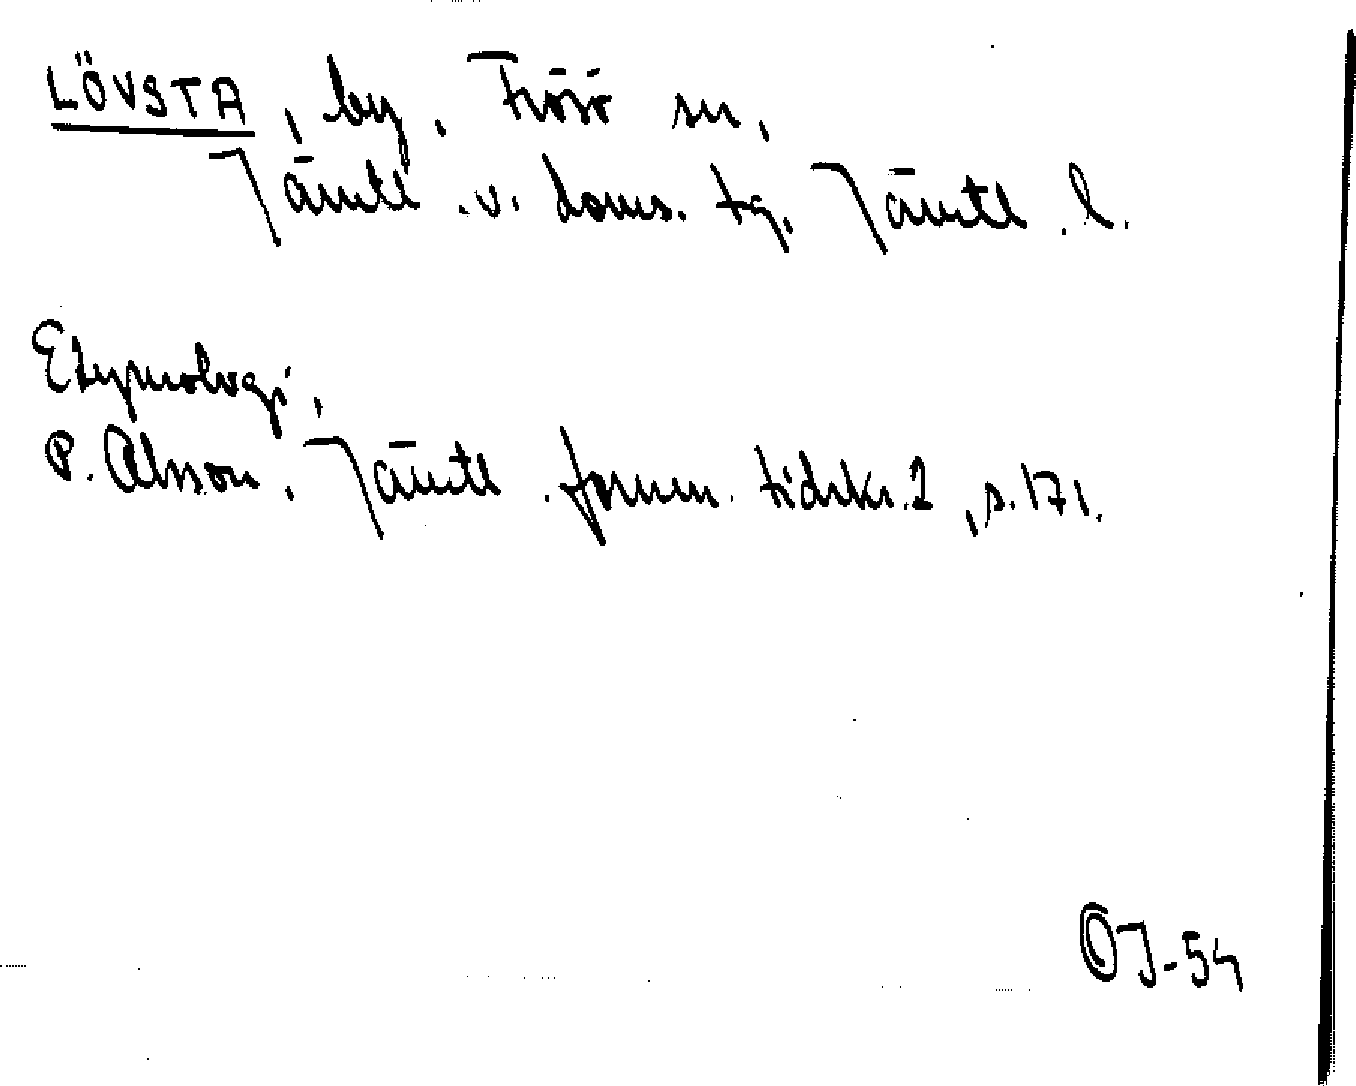 LÖVSTA, by, Frösö sn,
Jämtl. v. doms. tg. Jämtl. l.
Etymologi,
P. Olsson, Jämtl. fornm. tidskr. 2, s. 171.
OJ-54